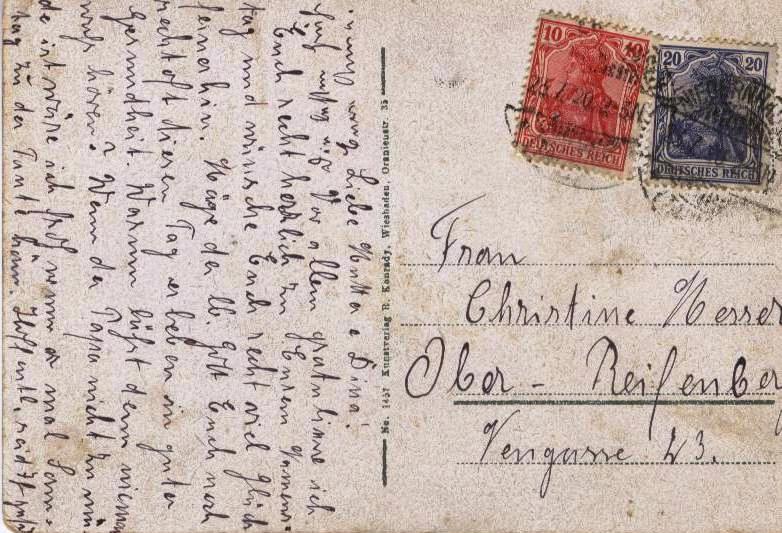 Liebe Mutter & Dina!
Vor allem gratuliere ich
Euch recht herzlich zu Eurem Namens-
tag und wünsche Euch recht viel Glück
fernerhin. Möge der lb. Gott Euch noch
recht oft diesen Tag erleben in guter
Gesundheit. Warum läßt denn niemand
was hören? Wenn der Papa nicht zu mü-
de ist wäre ich froh wenn er mal Sonn-
tag zu der Tante käm. Hoffentl. seid Ihr
No. 1457 Kunstverlag R. Konrady, Wiesbaden, Oranienstr. 35
10 10
DEUTSCHES REICH
20 20
DEUTSCHES REICH
Frau
Christine Messer
Ober - Reifenberg
Vengasse 23.